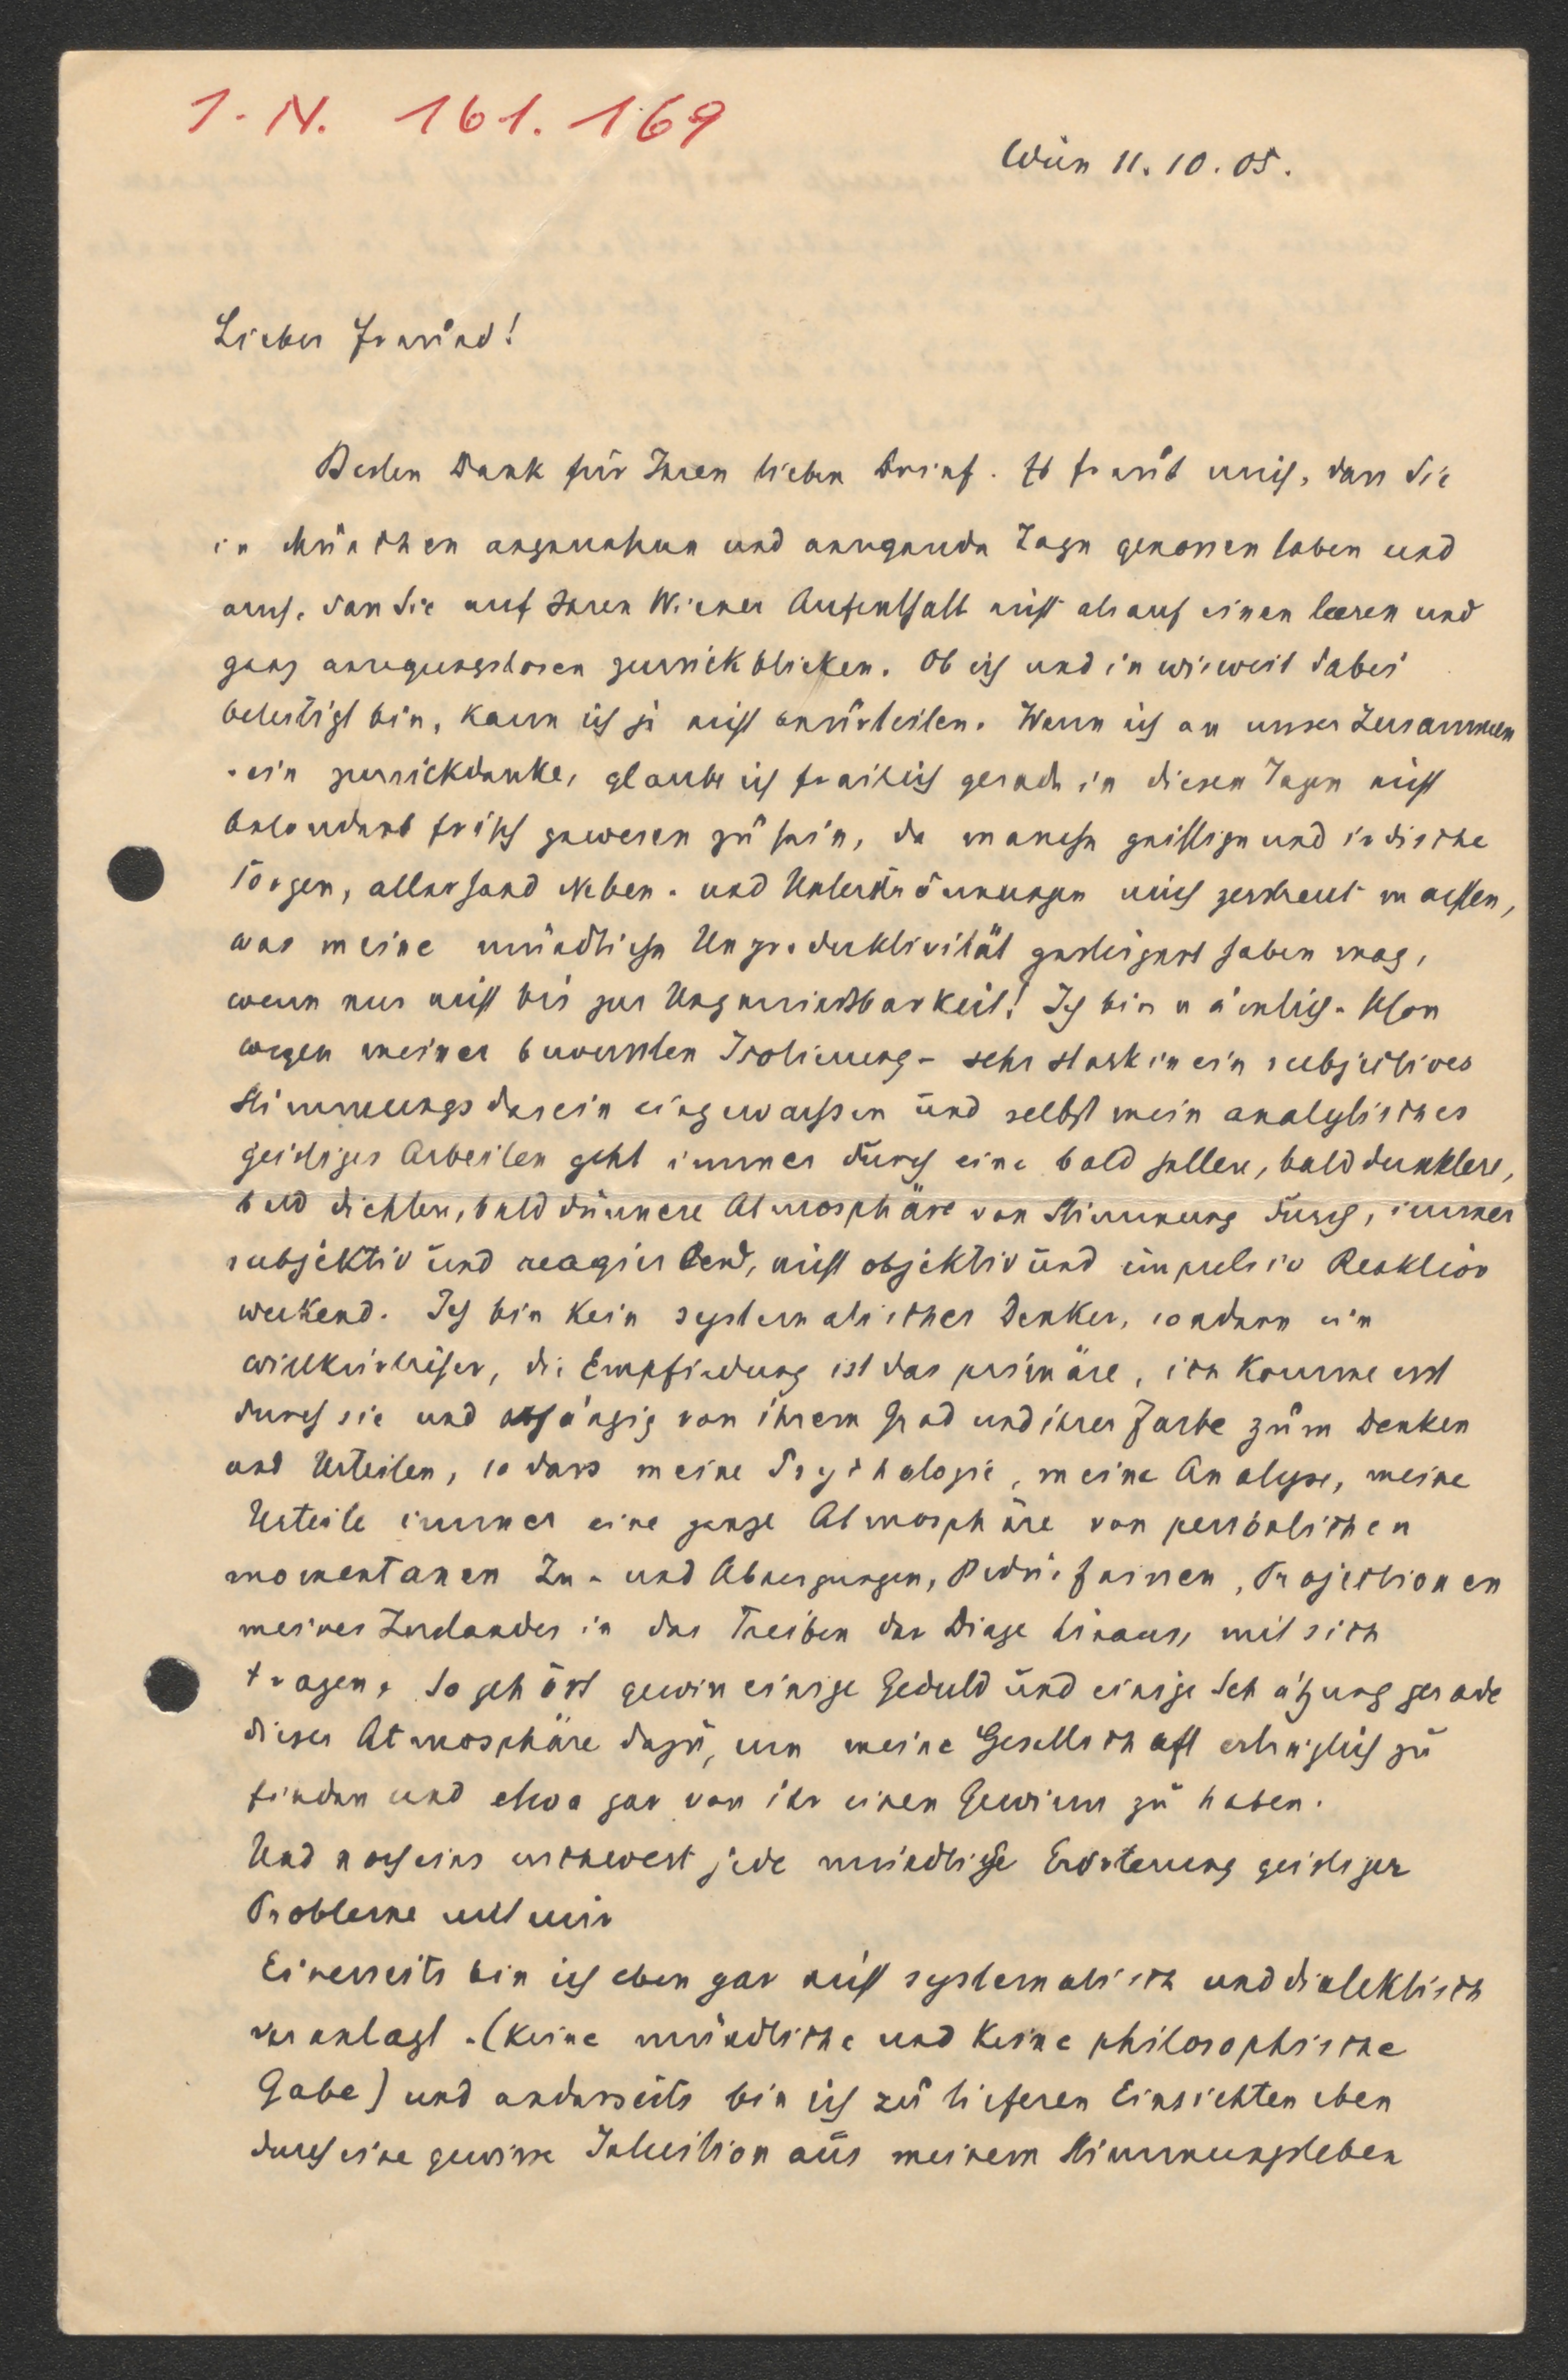 I.N. 161.169
Wien 11.10.05.
Lieber Freund!
Besten Dank für Ihren lieben Brief. Es freut mich, dass Sie
in München angenehme und anregende Tage genossen haben und
auch, dass Sie auf Ihren Wiener Aufenthalt nicht als auf einen leeren und
ganz anregungslosen zurückblicken. Ob ich und in wieweit dabei
beteiligt bin, kann ich ja nicht beurteilen. Wenn ich an unser Zusammen
-sein zurückdenke, glaube ich freilich gerade in diesen Tagen nicht
besonders frisch gewesen zu sein, da manche geistige und irdische
Sorgen, allerhand Neben- und Unterströmungen mich zerstreut machten,
was meine mündliche Unproduktivität gesteigert haben mag,
wenn nur nicht bis zur Ungeniessbarkeit! Ich bin nämlich - schon
wegen meiner bewussten Isolierung - sehr stark in ein subjectives
Stimmungsdasein eingewachsen und selbst mein analytisches
geistiges Arbeiten geht immer durch eine bald hellere, bald dunklere,
bald dichtere, bald dünnere Atmosphäre von Stimmung durch, immer
subjektiv und reagierend, nicht objektiv und impulsiv Reaktion
weckend. Ich bin kein systematischer Denker, sondern ein
willkürlicher, die Empfindung ist das primäre, ich komme erst
durch sie und abhängig von ihrem Grad und ihrer Farbe zum Denken
und Urteilen, so dass meine Psychologie, meine Analyse, meine
Urteile immer eine ganze Atmosphäre von persönlichen
momentanen Zu- und Abneigungen, Bedürfnissen, Projectionen
meines Zustandes in das Treiben der Dinge hinaus, mit sich
tragen. So gehört gewiss einige Geduld und einige Schätzung gerade
dieser Atmosphäre dazu, um meine Gesellschaft erträglich zu
finden und etwa gar von ihr einen Gewinn zu haben.
Und noch eins erschwert jede mündliche Erörterung geistiger
Probleme mit mir
Einerseits bin ich eben gar nicht systematisch und dialektisch
veranlagt. (Keine mündliche und keine philosophische
Gabe) und anderseits bin ich zu tieferen Einsichten eben
durch eine gewisse Intuition aus meinem Stimmungsleben